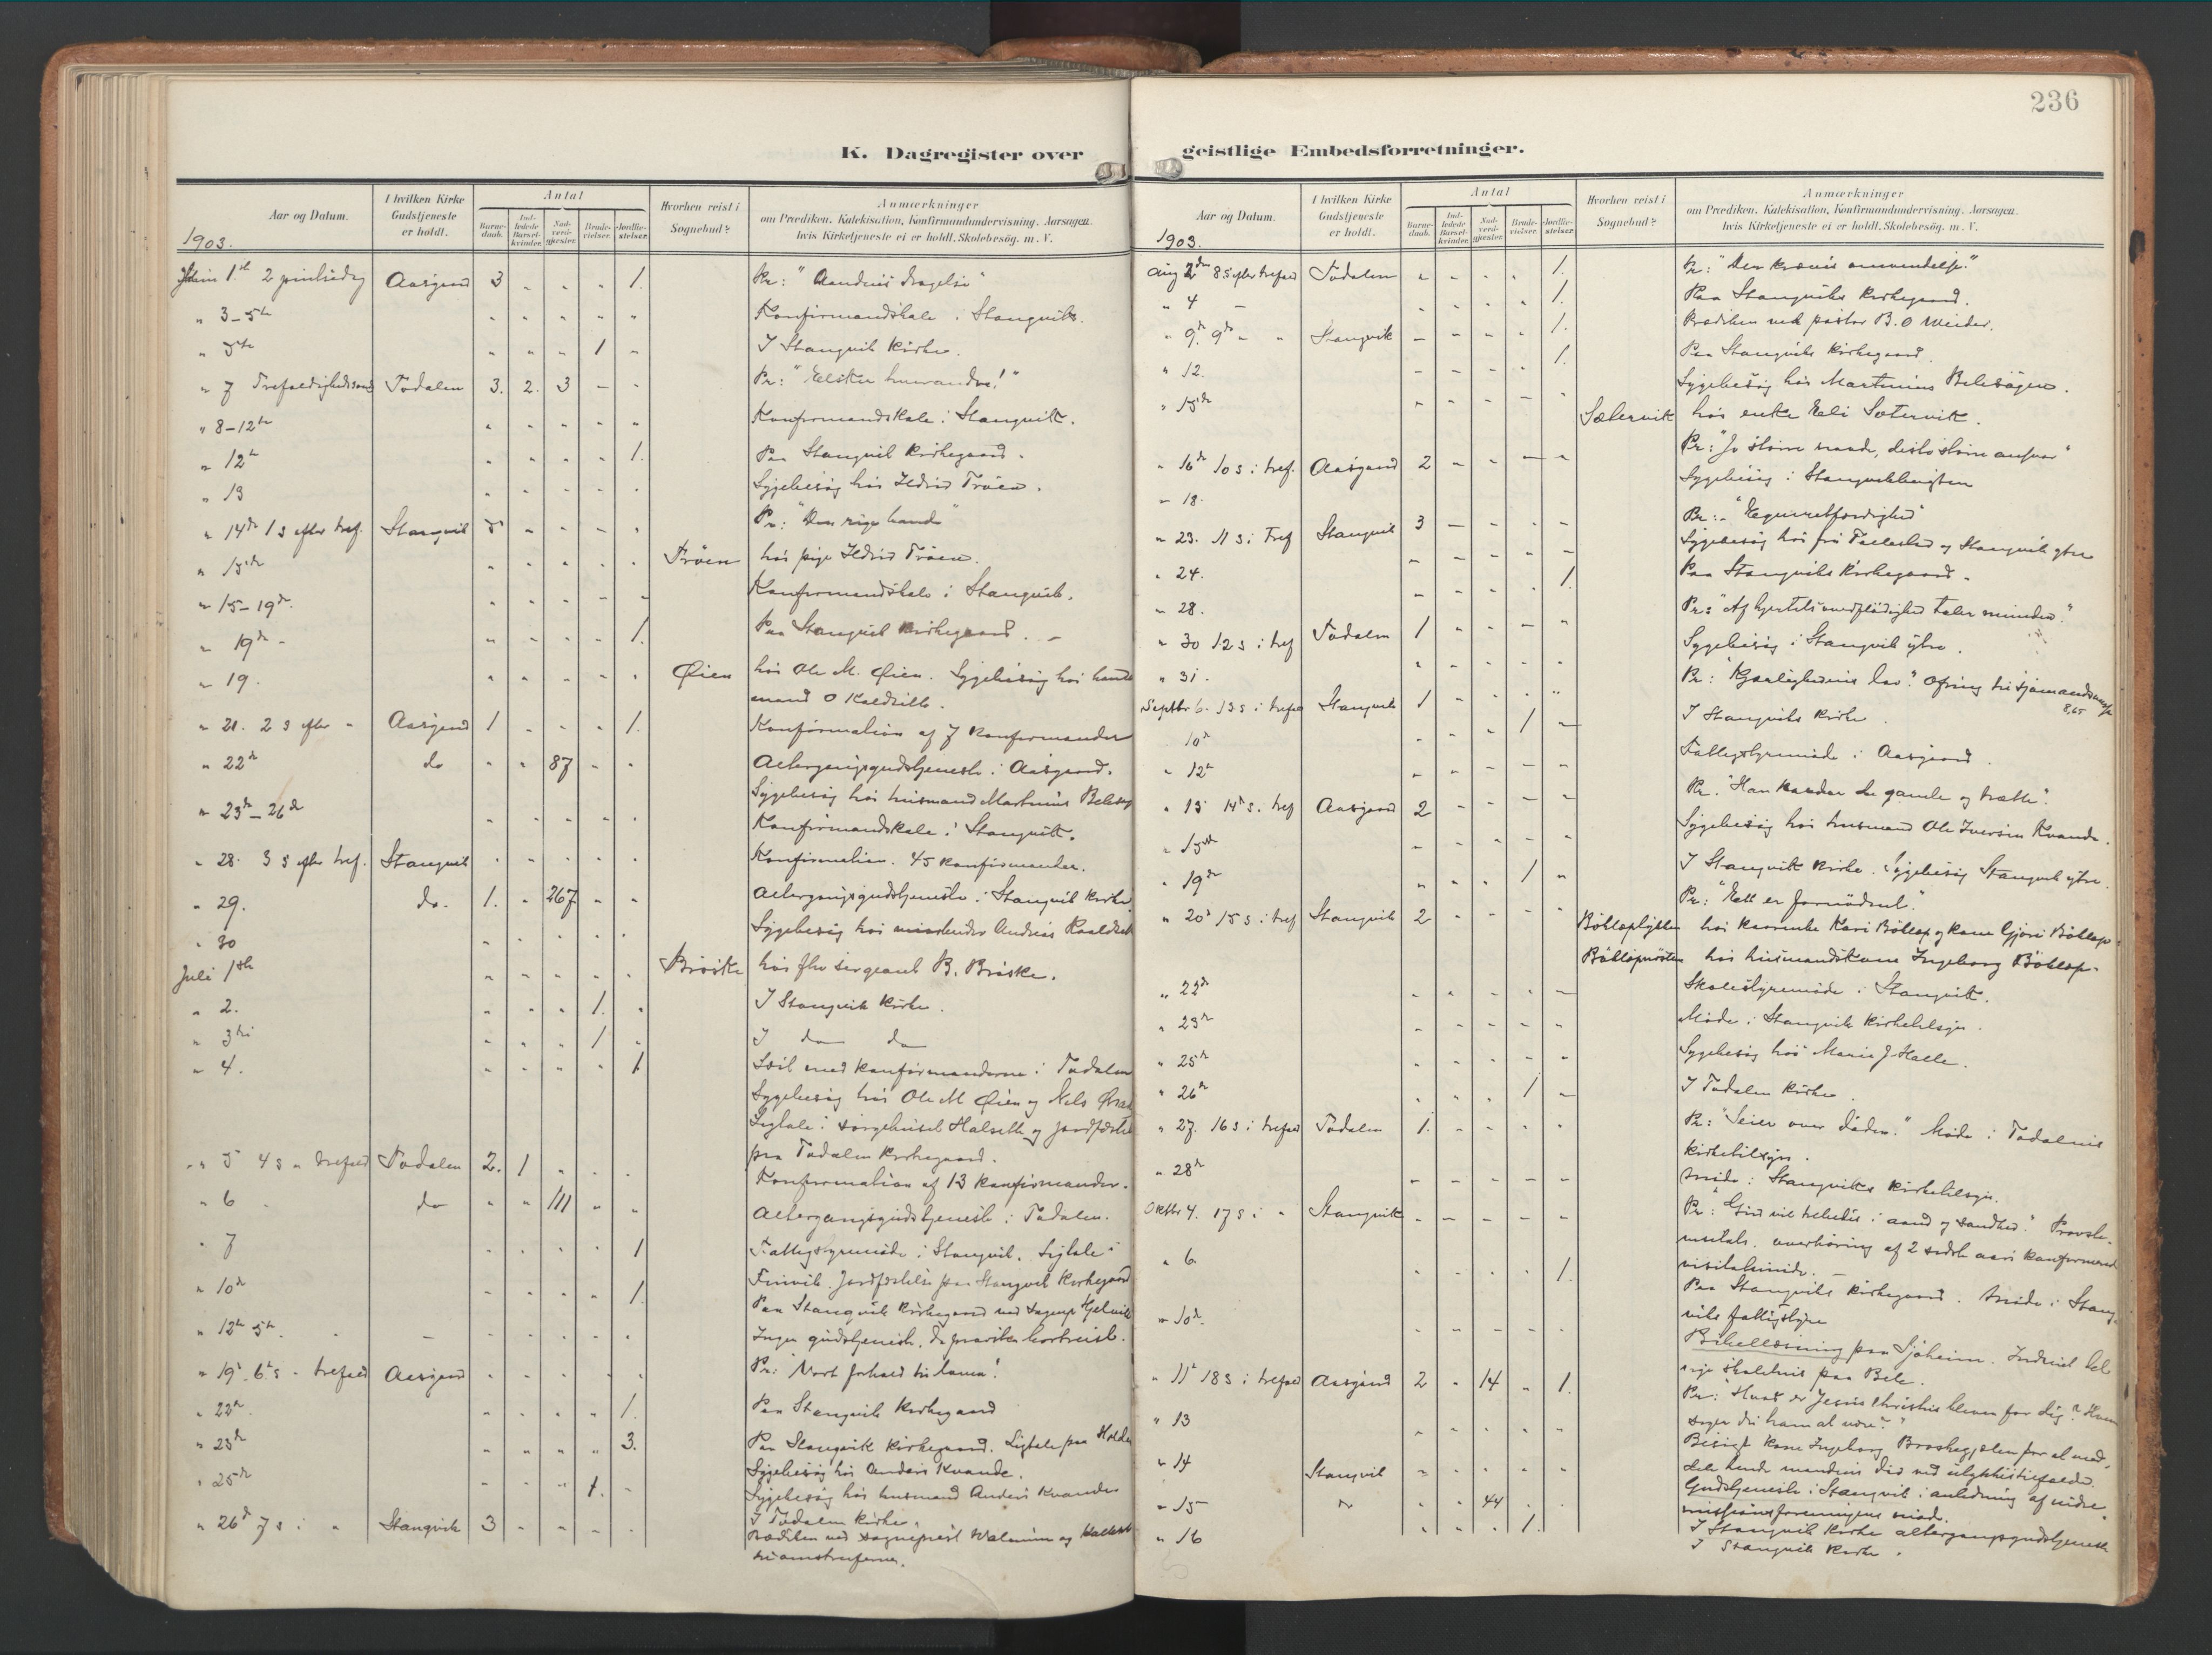 236
K. Dagregister over
Aar og Datum.
I hvilken Kirke Gudstjeneste er holdt.
Antal
Barnedaab.
Indledede Barselkvinder.
Nadverdgjester.
Brudevielser.
Jordfæstelser.
Hvorhen reist i Sognebud?
Anmærkninger
om Prædiken, Katekisation, Konfirmandundervisning, Aarsagen,
hvis Kirketjeneste ei er holdt, Skolebesøg, m. V.
1903.
Juni 1ste 2 pintsedag Aasgaard 3 " " " 1. Pr: "Aandens
" 3-5te " " " " " Konfirmandskole i Stangvik.
" 5te " " " 1 " I Stangvik kirke.
" 7 Trefoldighedssønd Todalen 3. 2. 3 - " Pr: "Elsker hverandre!"
" 8-12te " " " " " Konfirmandskole i Stangvik.
" 12te " " " " 1. Paa Stangvik kirkegaard.
" 13 " " " " " Sygebesøg hos Ildrid Trøen.
" 14de 1 s efter tref. Stangvik 5 " " " " Pr: "Den rige bonde"
" 15de " " " " " Trøen hos pige Ildrid Trøen.
" 15-19de. " " " " " Konfirmandskole i Stangvik.
" 19de - " " " " 1. Paa Stangvik kirkegaard. -
" 19. " " " " " Øien hos Ole M. Øien. Sygebesøg hos
mand O
" 21. 2 s efter " Aasgaard 1 " " " 1. Konfirmation af 7 konfirmander
" 22de do " " 87 " " Altergangsgudstjeneste i Aasgaard.
Sygebesøg hos husmand Martinus
" 23de-26de " " " " " Konfirmandskole i Stangvik.
" 28. 3 s efter tref. Stangvik " " " " " Konfirmation. 45 konfirmander.
" 29. do. 1. " 267 " " Altergangsgudstjeneste i Stangvik kirke.
" 30 " " " " Sygebesøg hos Andreas
Juli 1ste " " " " " Brøske hos fhv sergeant B. Brøske.
" 2. " " " 1. " I Stangvik kirke.
" 3die " " " 1 " I do do
" 4. " " " " 1 med konfirmanderne i Todalen
Sygebesøg hos Ole M Øien og Nels
Ligtale i sørgehuset Halseth og jordfæstet
paa Todalen kirkegaard.
" 5 4 s " trefold Todalen 2. 1 " " " Konfirmation af 13 konfirmander.
" 6 do " " 111 " " Altergangsgudstjeneste i Todalen.
" 7 " " " " 1 Fattigstyremøde i Stangvik. Ligtale i
Jordfæstelse paa Stangvik kirkegaard
" 10de " " " " 1. Paa Stangvik kirkegaard ved
" 12te 5te. " - " " " " " Ingen gudstjeneste, da presten bortreist.
" 19de 6te s " trefold Aasgaard " " " " " Pr: "Vort forhold til loven".
" 22de. " " " " 1. Paa Stangvik kirkegaard
" 23de " " " " 3. Paa Stangvik kirkegaard. Ligtale paa
Sygebesøg hos Anders Kvande.
" 25de " " " 1. " Sygebesøg hos husmand Anders Kvande
I Todalen kirke.
" 26de 7 s i " Stangvik 3 " " " " Prædiken ved sogneprest
geistlige Embedsforretninger.
Aar og Datum.
I hvilken Kirke Gudstjeneste er holdt.
Antal
Barnedaab.
Indledede Barselkvinder.
Nadverdgjester.
Brudevielser.
Jordfæstelser.
Hvorhen reist i Sognebud?
Anmærkninger
om Prædiken, Katekisation, Konfirmandundervisning, Aarsagen,
hvis Kirketjeneste ei er holdt, Skolebesøg, m. V.
1903.
Aug 2den 8 s efter trefold Todalen " " " " 1. Pr: "Den omvendelse."
" 4 - " " " " 1. Paa Stangviks kirkegaard.
" 9de 9de " " Stangvik - " " " 1. Prædiken ved pastor B. O
" 12. - " " " 1. Paa Stangviks kirkegaard.
Sygebesøg hos Martinus
" 15de " " " " " Sætervik hos enke Eli Sætervik.
" 16de 10 s i tref. Aasgaard 2 - " - " Pr: "Jo større naade, desto større ansvar"
" 18. Sygebesøg i
" 23. 11 s i Tref Stangvik 3 - " " - Pr: "Egenretfærdighed"
" 24. Sygebesøg hos fru og Stangvik ytre
" 28. 1. Paa Stangviks kirkegaard.
" 30 12 s i tref Todalen 1 " " - " Pr: "Af hjertets overflødighed taler munden."
" 31. Sygebesøg i Stangvik ytre.
Septbr 6. 13 s i trefold Stangvik 1 - " " " Pr: "Kjærlighedens lov". Ofring til sjømandsmis
8,65
10de " " " 1 - I Stangviks kirke.
" 12te - - " " " Fattigstyremøde i Aasgaard.
" 13. 14de s. i tref Aasgaard 2 - " - - Pr. "Han kender de gamle og trætte".
" 15de - - " " " Sygebesøg hos husmand Ole Iversen Kvande.
" 19de " " " 1 " I Stangvik kirke. Sygebesøg Stangvik ytre.
" 20de 15 s i tref Stangvik 2 " " " " Pr: "Ett er fornødent".
hos Kari Bøklep og kone
hos husmandskone Ingeborg Bøklep.
" 22de " " " " - Skolestyremøde i Stangvik.
" 23de - " " - " Møde i Stangvik kirketilsyn.
" 25de " " " " " Sygebesøg hos Marie J. Halle.
" 26de " " " 1 - I Todalen kirke.
" 27. 16 s i trefold Todalen 1. " " " " Pr: "Seier over døden." Møde i Todalens
kirketilsyn.
" 28de - " - - - Møde i Stangviks kirketilsyn.
Oktbr 4. 17 s i " Stangvik " - - - - Pr: "Gud vil tilbedes i aand og sandhed." Provste-
visitats. overhøring af 2 sidste aars konfirmered
visitatsmøde. -
" 6. " " " " 1. Paa Stangviks kirkegaard. Møde i Stang-
viks fattigstyre
" 10de. - - - - - Bibellæsning paa Sjøheim.
paa
" 11te 18 s i trefold Aasgaard 2 " 14 " 1. Pr: "Hvad er Jesus Christus bleven for dig? Hvem
siger du ham at være?"
" 13 Besøgt kone Ingeborg for at med-
dele hende mandens død ved ulykkestilfælde.
" 14 Stangvik - " " " " Gudstjeneste i Stangvik i anledning af indre-
missionsforeningens møde.
" 15 do " " 44 " " I Stangvik kirke altergangsgudstjeneste
" 16 " " " 1. I Stangvik kirke.